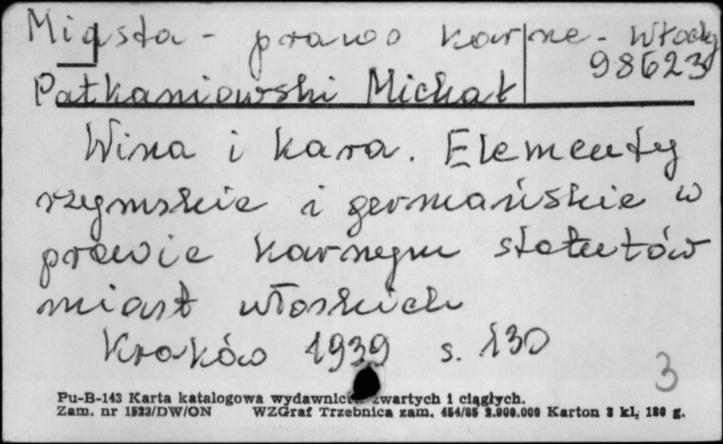 Miasta - prawo karne - Włochy
98623
Patkaniowski Michał
Wina i kara. Elementy
rzymskie i germańskie w
prawie karnym statutów
miast włoskich
Kraków 1939 s. 130
3
Pu-B-143 Karta katalogowa wydawnictw zwartych i ciągłych.
Zam. nr 1523/DW/ON WZGraf Trzebnica zam. 454/85 2.000.000 Karton 3 kl, 180 g.